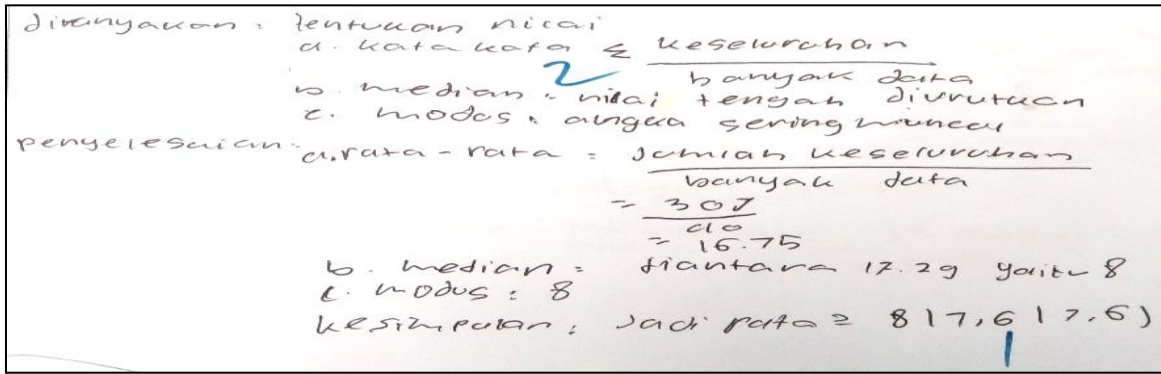 ditanyakan : tentukan nicai
a. kata kata ≤ keseluruhan
banyak data
2
b. median : nilai tengah diurutkan
c. modus : angka sering muncul
penyelesaian :
a. rata - rata = Jumlah keseluruhan
banyak data
= 307
= 16.75
b. median = diantara 17.29 yaitu 8
c. modus : 8
kesimpulan : Jadi rata = 8 (7,6 (7,6)
1